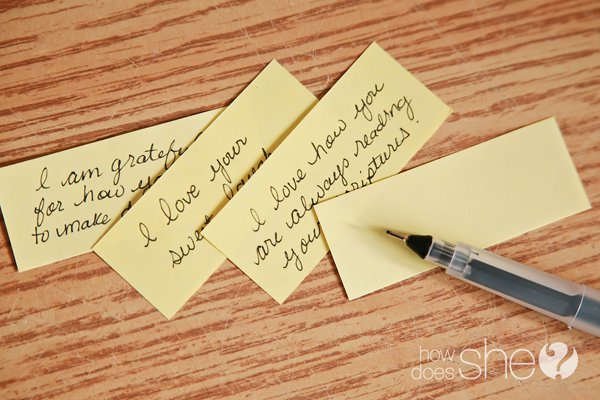 I am gratef
for how y
to make a
I love your
swee laugh
I love how you
are always reading
your scriptures!
how
does
She?